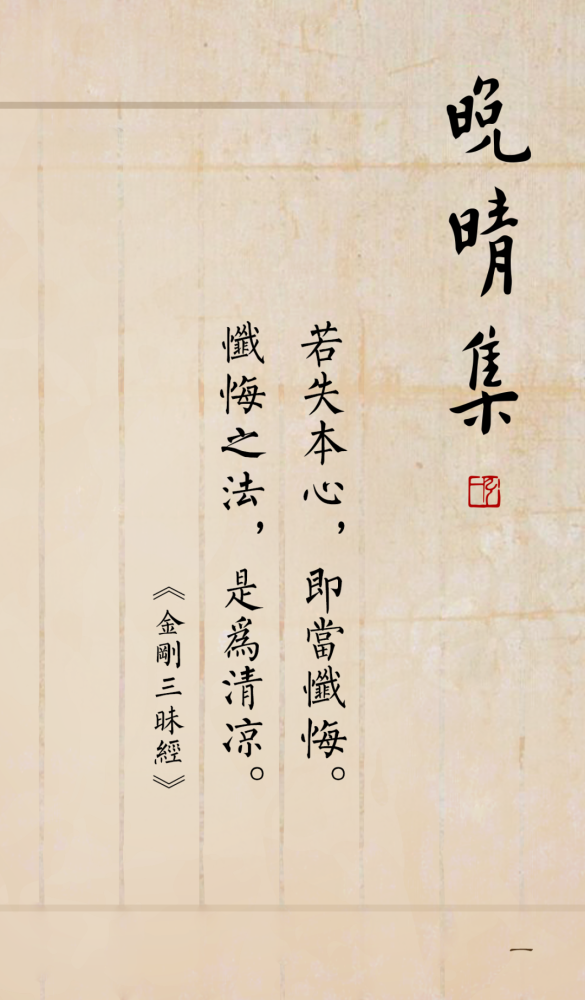 晚晴集
若失本心，即當懺悔。
懺悔之法，是為清凉。
《金剛三昧經》
一